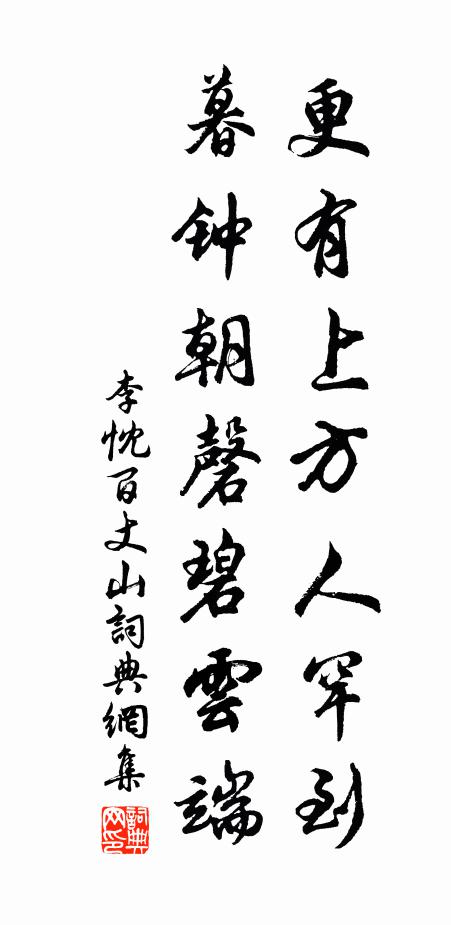 更有上方人罕到
暮钟朝磬碧雲端
李忱百丈山詞典網集
詞典网印